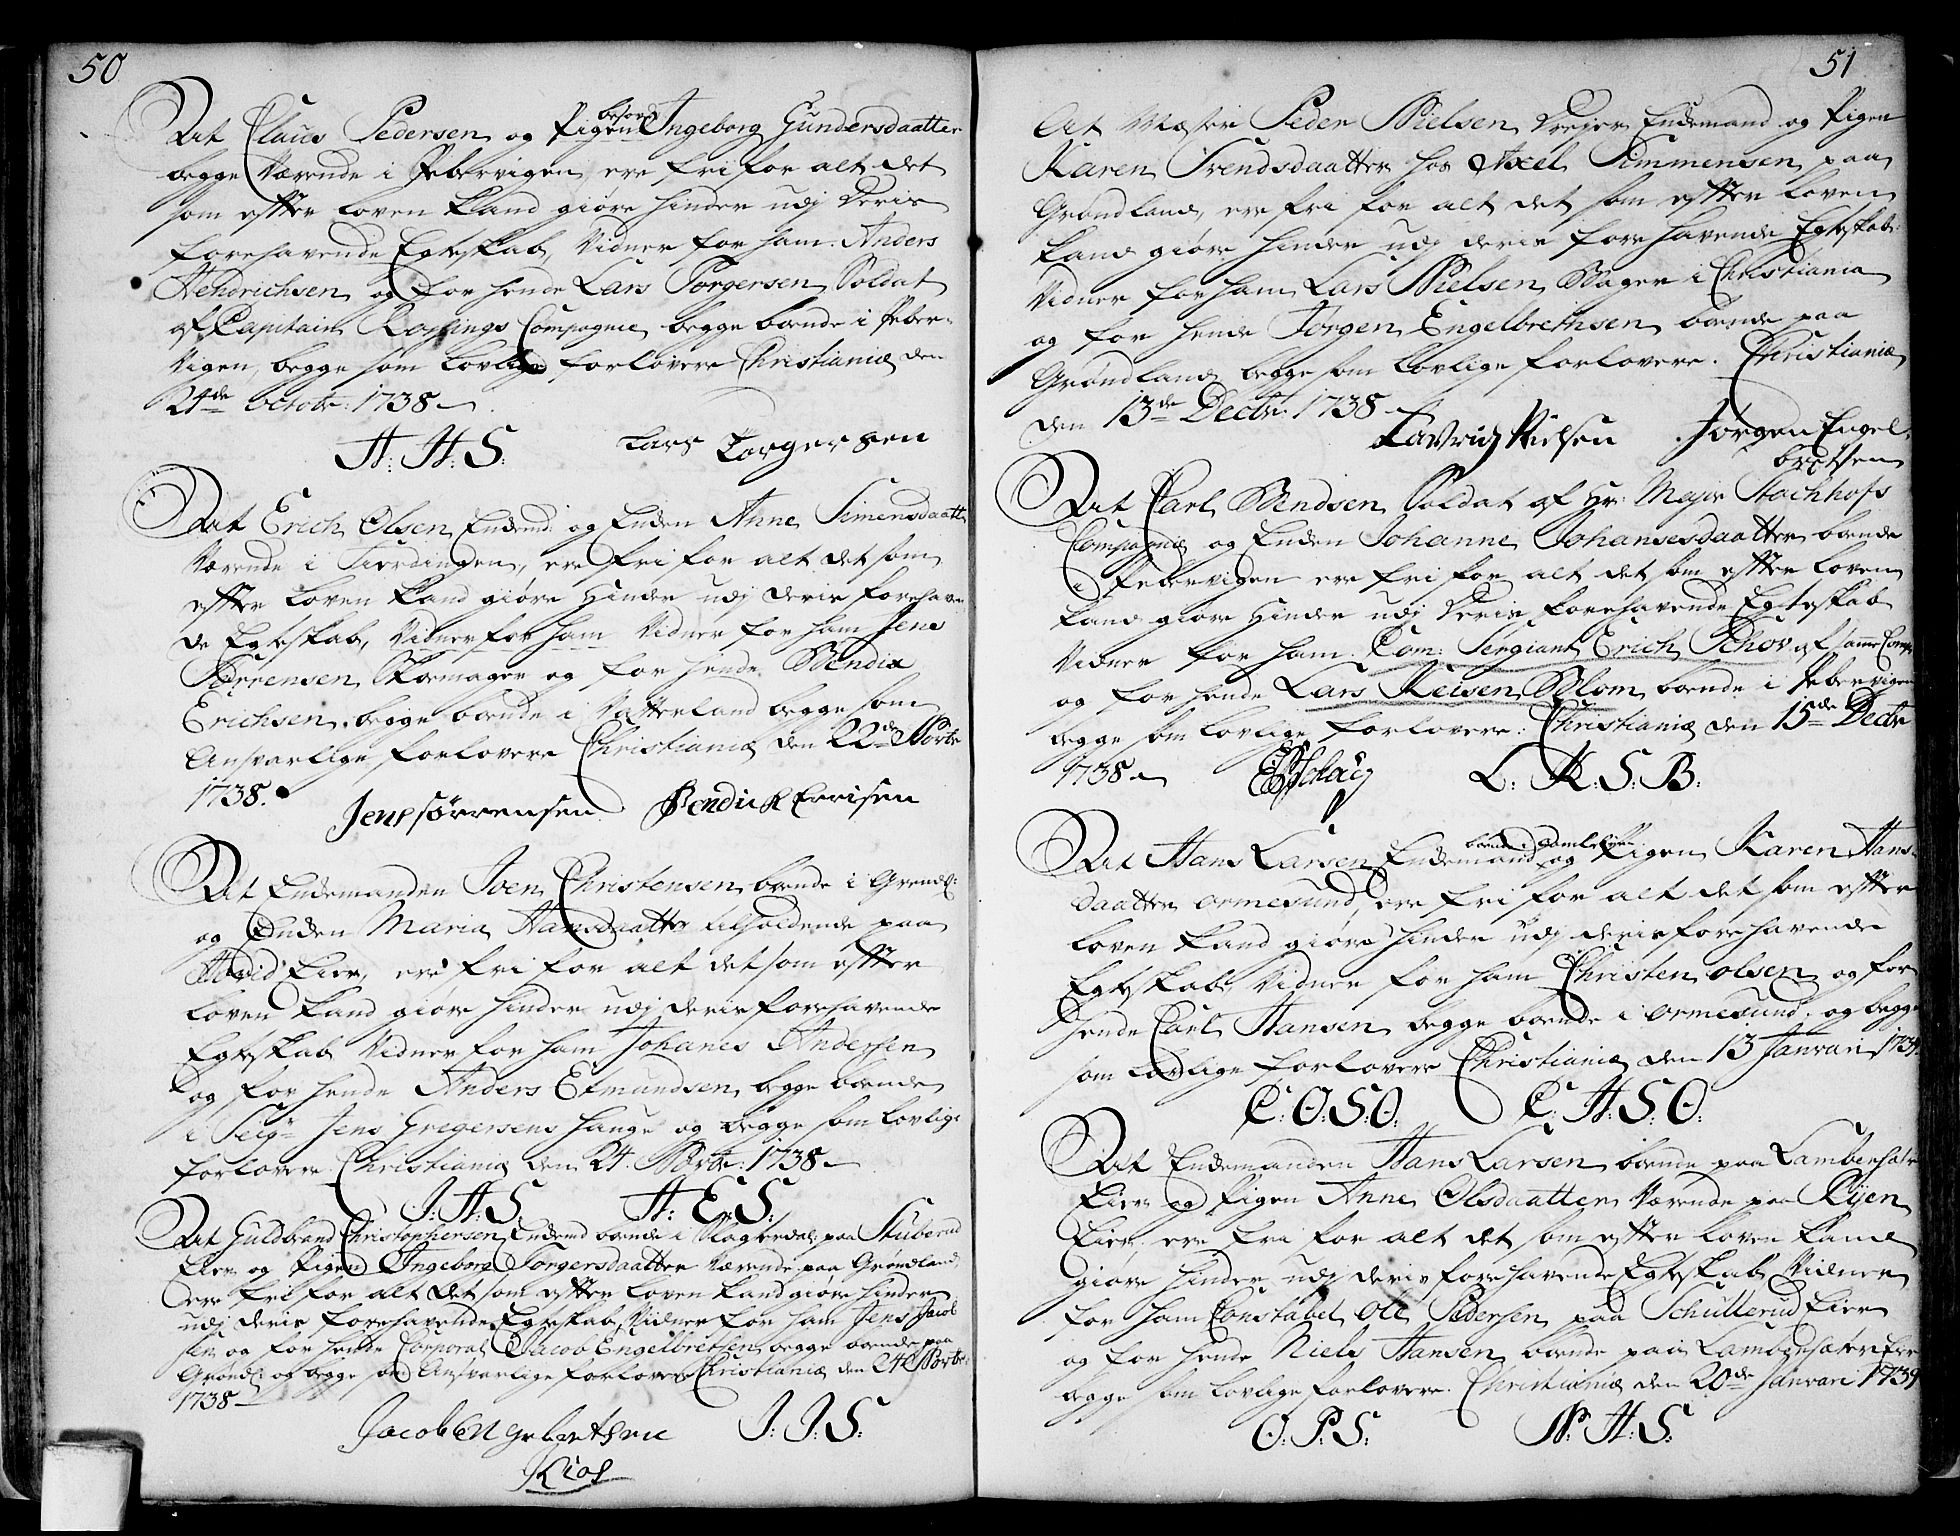 50
At Claus Pedersen og Pigen Ingeborg Gundersdaatter
begge Værende i Pebervigen, ere fri for alt det
som effter Loven kand giøre hinder udj deris
forehavende Egteskab, Vidner for ham Anders
Hendrichsen og for hende Lars Torgersen Soldat
af Capitain Compagnie, begge boende i Peber-
Vigen, begge som Lovlige forlovere Christianiæ den
24de octobr: 1738
A. H. S. Lars Torgersen
At Erich Olsen Enckemd: og Encken Anne Simensdaatt
Værende i Fierdingen, ere fri for alt det som
effter Loven kand giøre hinder udj deris forehaven
de Egteskab, Vidner for ham Vidner for ham Jens
Sørrensen Skoemager og for hende Bendix
Erichsen, begge boende i Vatterland begge som
Ansvarlige forlovere Christianiæ den 22de Novbr
1738.
Jens sørrensen Bendick Errisen
At Enckemanden Joen Christensen boende i Grendsl:
og Encken Maria Hansdaatter tilholdende paa
Hovid Eier, ere fri for alt det som effter
Loven kand giøre hinder udj deris forehavende
Egteskab Vidner for ham Johanes Andersen
og for hende Anders Etmundsen begge boende
i Seigr Jens Gregersens Hauge og begge som Lovlig:
forlovere Christianiæ den 24. Novbr: 1738
J. A. S. A. E. S.
At Guldbrand Christophersen Enckemd boende i Magerdal: paa Stuberud
Eier og Pigen Ingeborg Torgersdaatter Værende paa Grønland:
ere fri for alt det som effter Loven kand giøre hinder
udj deris forehavende Egteskab, Vidner for ham Jens Jacob
sen og for hende Corporal Jacob Engelbretsen begge boende paa
Grønl: og begge som Ansvarlige forlovere Christianiæ den 24 Novbr
1738
Jacob En gebretsen J. J. S.
51
At Mæster Peder Nielsen Dreyer Enckemand og Pigen
Karen Svendsdaatter hos Axel Simmensen paa
Grønland, ere fri for alt det som effter Loven
kand giøre hinder udj deris forehavende Egteskab:
Vidner for ham Lars Nielsen Bager i Christiania
og for hende Jørgen Engelbrethsen boende paa
Grønland begge som Lovlige forlovere. Christianiæ
den 13de Decbr: 1738
Lavridz Nielsen Jørgen Engel-
bretsen
At Carl Bendsen Soldat af Hr: Major Stochhofs
Compagnie og Encken Johanne Johansesdaatter boende
i Pebervigen ere fri for alt det som effter Loven
kand giøre hinder udj Deris forehavende Egteskab
Vidner for ham Com: Sergiant Erich Schov af samme Comp:
og for hende Lars Keisen Blom boende i Pebervigen
begge som Lovlige forlovere: Christianiæ den 15de Decbr
1738 L. K. S. B.
At Hans Larsen Enckemand boende i Gamlebyen og Pigen Karen Hans-
daatter ormesund, ere fri for alt det som effter
Loven kand giøre hinder udj deris forehavende
Egteskab, Vidner for ham Christen olsen og for
hende Carl Hansen begge boende i ormesund, og begge
som Lovlige forlovere Christianiæ den 13 Januari 1739
C. O. S. O. C. H. S. O.
At Enckemanden Hans Larsen boende paa Lambersæter
Eier og Pigen Anne Olsdaatter Værende paa Ryen
Eier ere fri for alt det som effter Loven kand
giøre hinder udj deris forehavende Egteskab Vidner
for ham Constabel Ole Pedersen paa Schullerud Eier
og for hende Niels Hansen boende paa Lambersæter Eier
begge som Lovlige forlovere. Christianiæ den 20de Januari 1739
O. P. S. N. H. S.